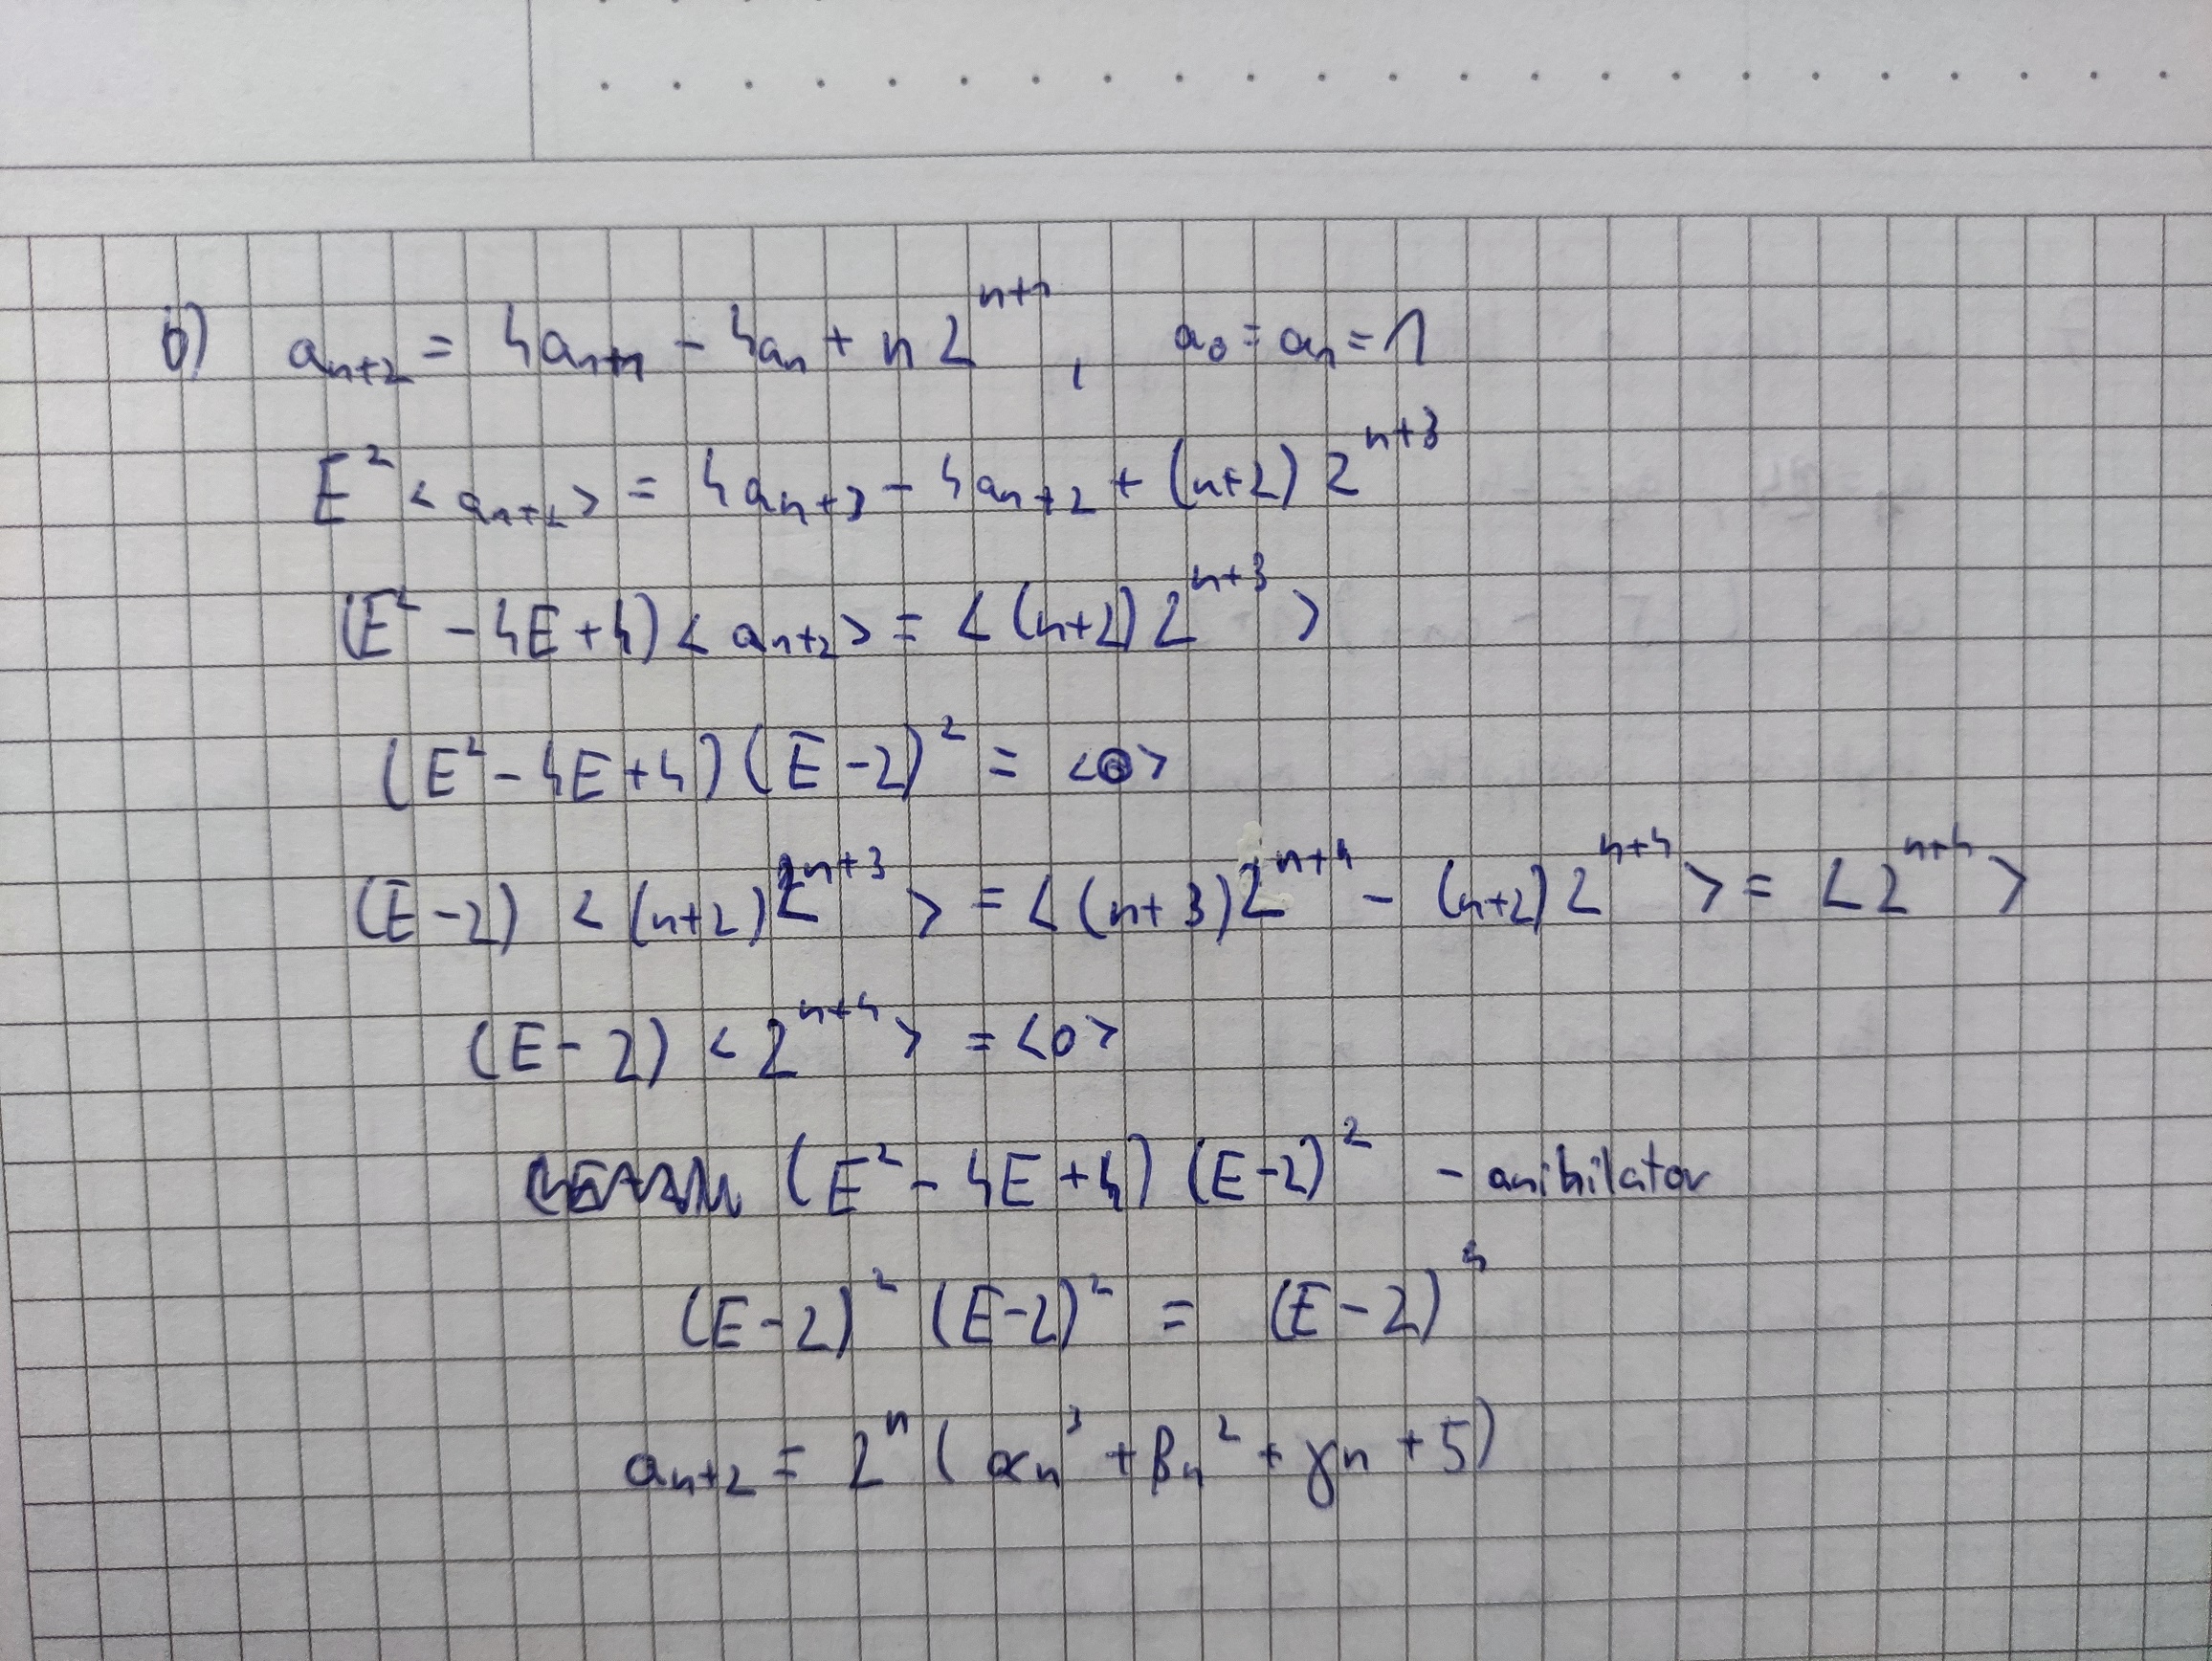 b) aₙ₊₂ = 4aₙ₊₁ - 4aₙ + n 2ⁿ⁺¹, a₀ = a₁ = 1
E² <aₙ₊₂> = 4aₙ₊₃ - 4aₙ₊₂ + (n+2) 2ⁿ⁺³
(E² - 4E + 4) <aₙ₊₂> = <(n+2) 2ⁿ⁺³>
(E² - 4E + 4) (E - 2)² = <0>
(E - 2) <(n+2) 2ⁿ⁺³> = <(n+3) 2ⁿ⁺⁴ - (n+2) 2ⁿ⁺⁴> = <2ⁿ⁺⁴>
(E - 2) <2ⁿ⁺⁴> = <0>
(E² - 4E + 4) (E - 2)² - anihilator
(E - 2)² (E - 2)² = (E - 2)⁴
aₙ₊₂ = 2ⁿ (αn³ + βn² + γn + δ)